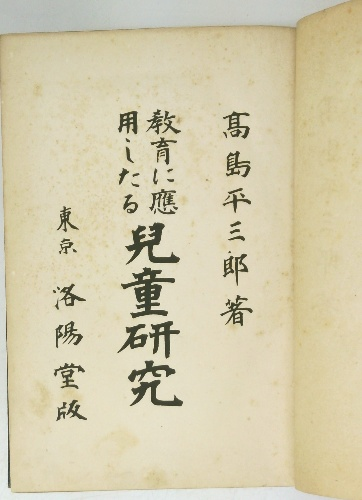 髙島平三郎著
教育に應
用したる
兒童研究
東京 洛陽堂版